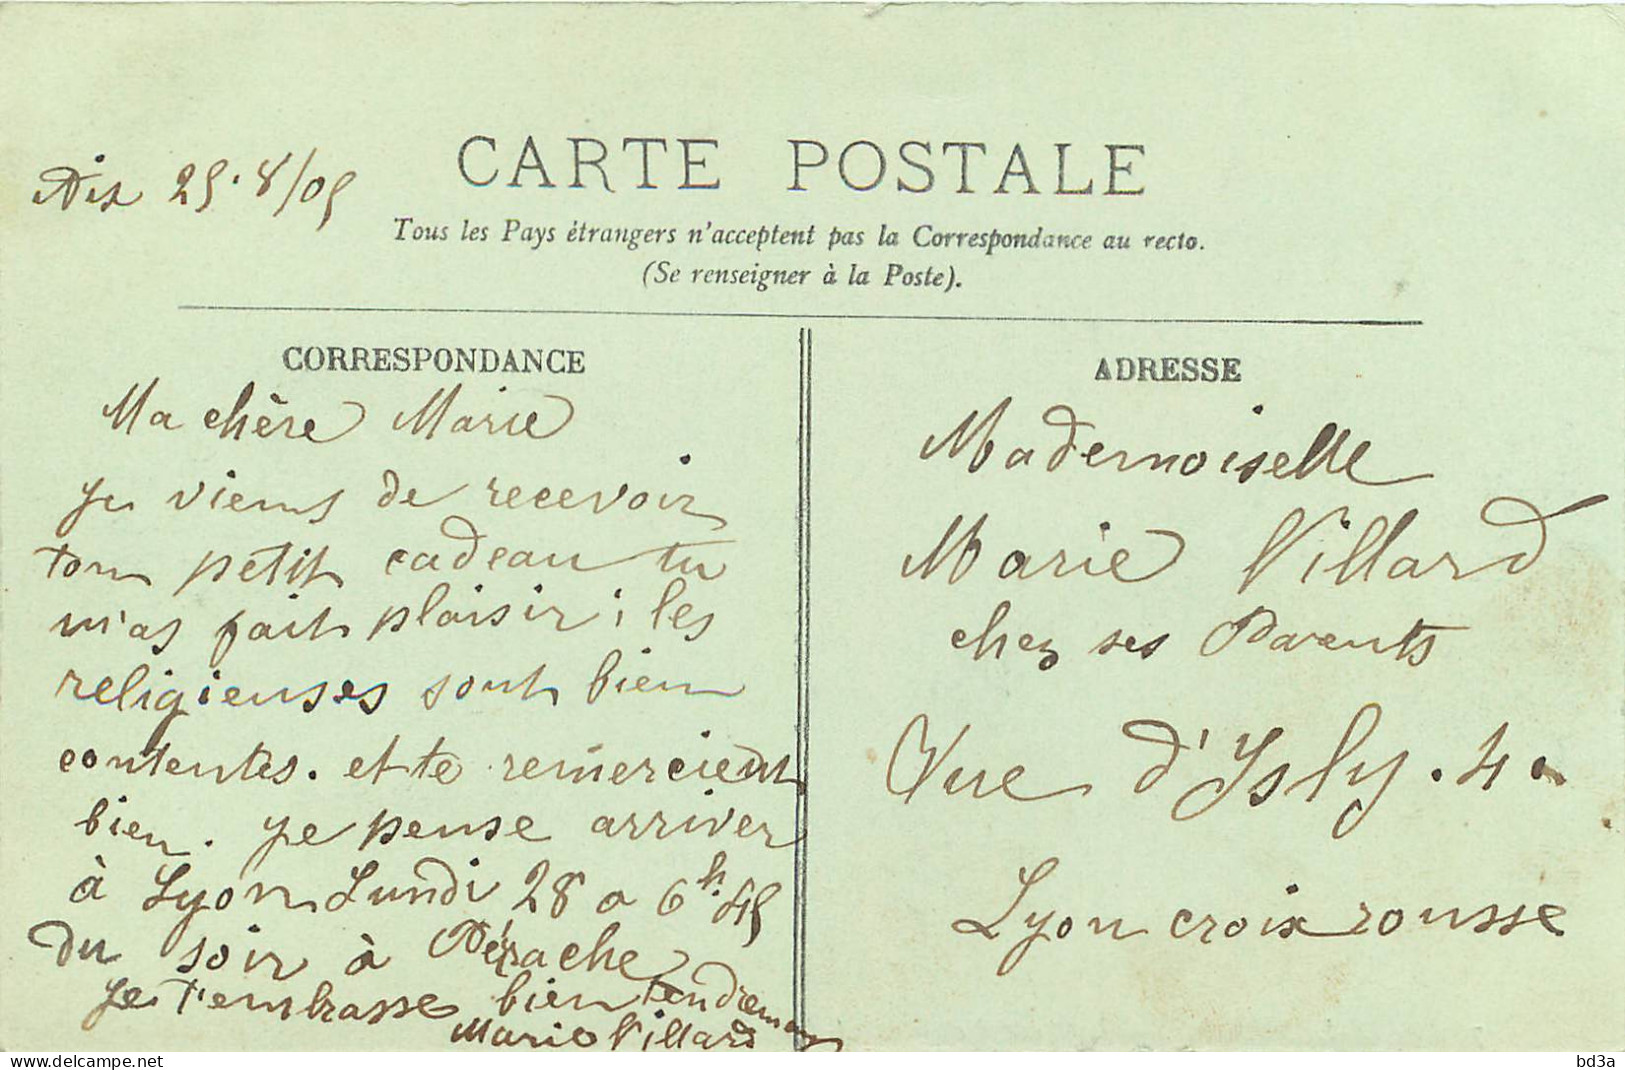 CARTE POSTALE
Aix 25.8/05
Tous les Pays étrangers n'acceptent pas la Correspondance au recto.
(Se renseigner à la Poste).
CORRESPONDANCE
Ma chère Marie
Je viens de recevoir
ton petit cadeau tu
m'as fait plaisir; les
religieuses sont bien
contentes. et te remercient
bien. Je pense arriver
à Lyon Lundi 28 a 6h.45
du soir à Pérache
Je t'embrasse bien tendrement
Marie Villard
ADRESSE
Mademoiselle
Marie Villard
chez ses Parents
Rue d'Isly. 4
Lyon croix rousse
delcampe.net
bd3a